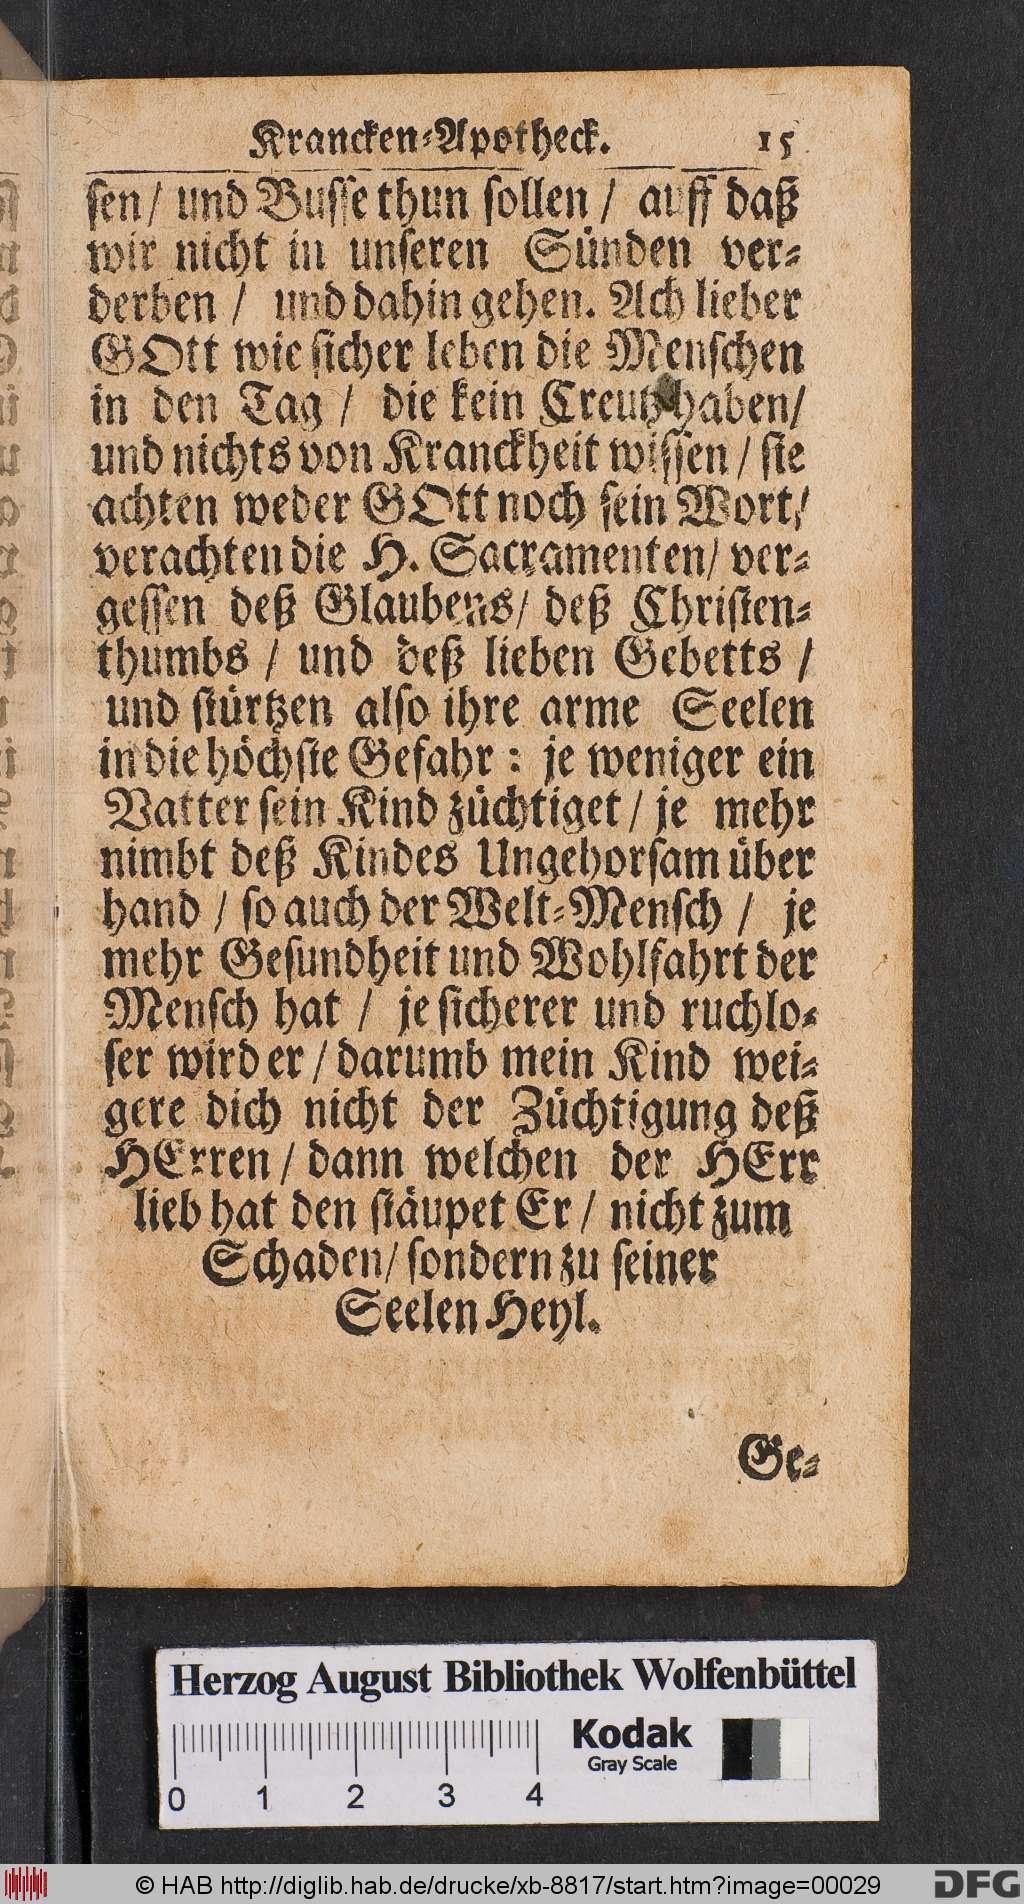 Krancken-Apotheck. 15
sen/ und Busse thun sollen / auff daß
wir nicht in unseren Sünden ver-
derben / und dahin gehen. Ach lieber
GOtt wie sicher leben die Menschen
in den Tag / die kein Creutz haben/
und nichts von Kranckheit wissen / sie
achten weder GOtt noch sein Wort/
verachten die H. Sacramenten/ ver-
gessen deß Glaubens/ deß Christen-
thumbs / und deß lieben Gebetts /
und stürtzen also ihre arme Seelen
in die höchste Gefahr: je weniger ein
Vatter sein Kind züchtiget / je mehr
nimbt deß Kindes Ungehorsam über
hand / so auch der Welt-Mensch / je
mehr Gesundheit und Wohlfahrt der
Mensch hat / je sicherer und ruchlo-
ser wird er / darumb mein Kind wei-
gere dich nicht der Züchtigung deß
HErren / dann welchen der HErr
lieb hat den stäupet Er / nicht zum
Schaden/ sondern zu seiner
Seelen Heyl.
Ge-
Herzog August Bibliothek Wolfenbüttel
Kodak
Gray Scale
0 1 2 3 4
© HAB http://diglib.hab.de/drucke/xb-8817/start.htm?image=00029
DFG